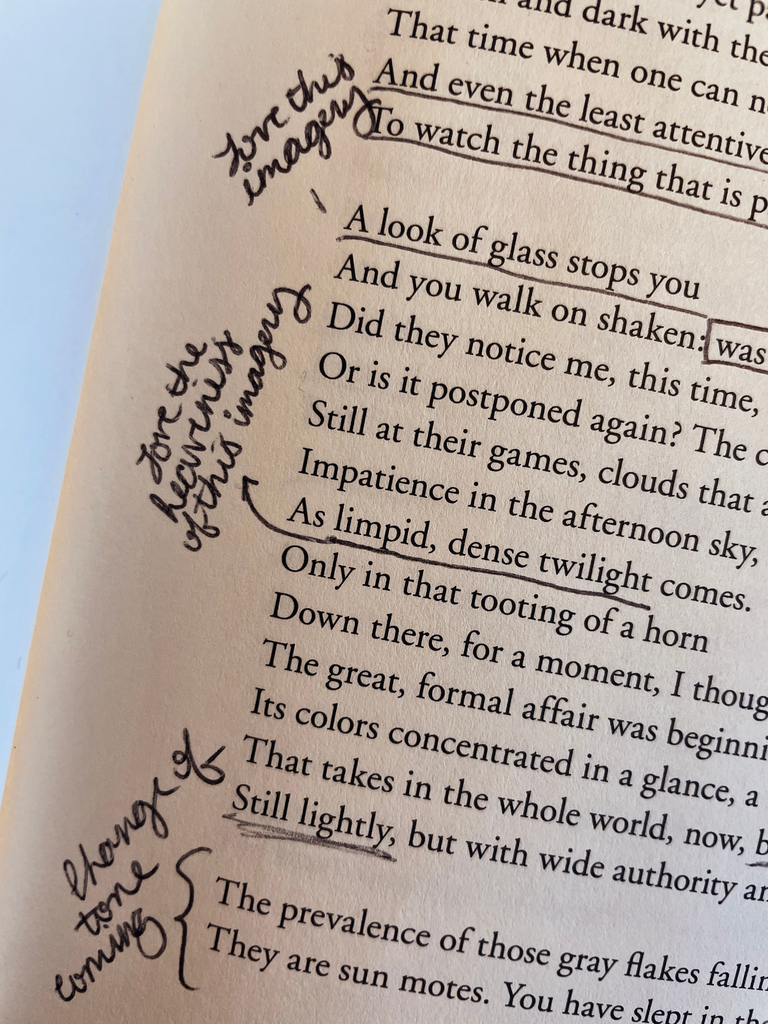 and dark with the
That time when one can
And even the least attentive
To watch the thing that is
love this
imagery
A look of glass stops you
And you walk on shaken: was
Did they notice me, this time,
Or is it postponed again? The
Still at their games, clouds that
Impatience in the afternoon sky,
As limpid, dense twilight comes.
love the
heaviness
of this imagery
Only in that tooting of a horn
Down there, for a moment, I thoug
The great, formal affair was beginni
Its colors concentrated in a glance, a
That takes in the whole world, now, b
Still lightly, but with wide authority an
change of
tone
coming
The prevalence of those gray flakes fallin
They are sun motes. You have slept in the